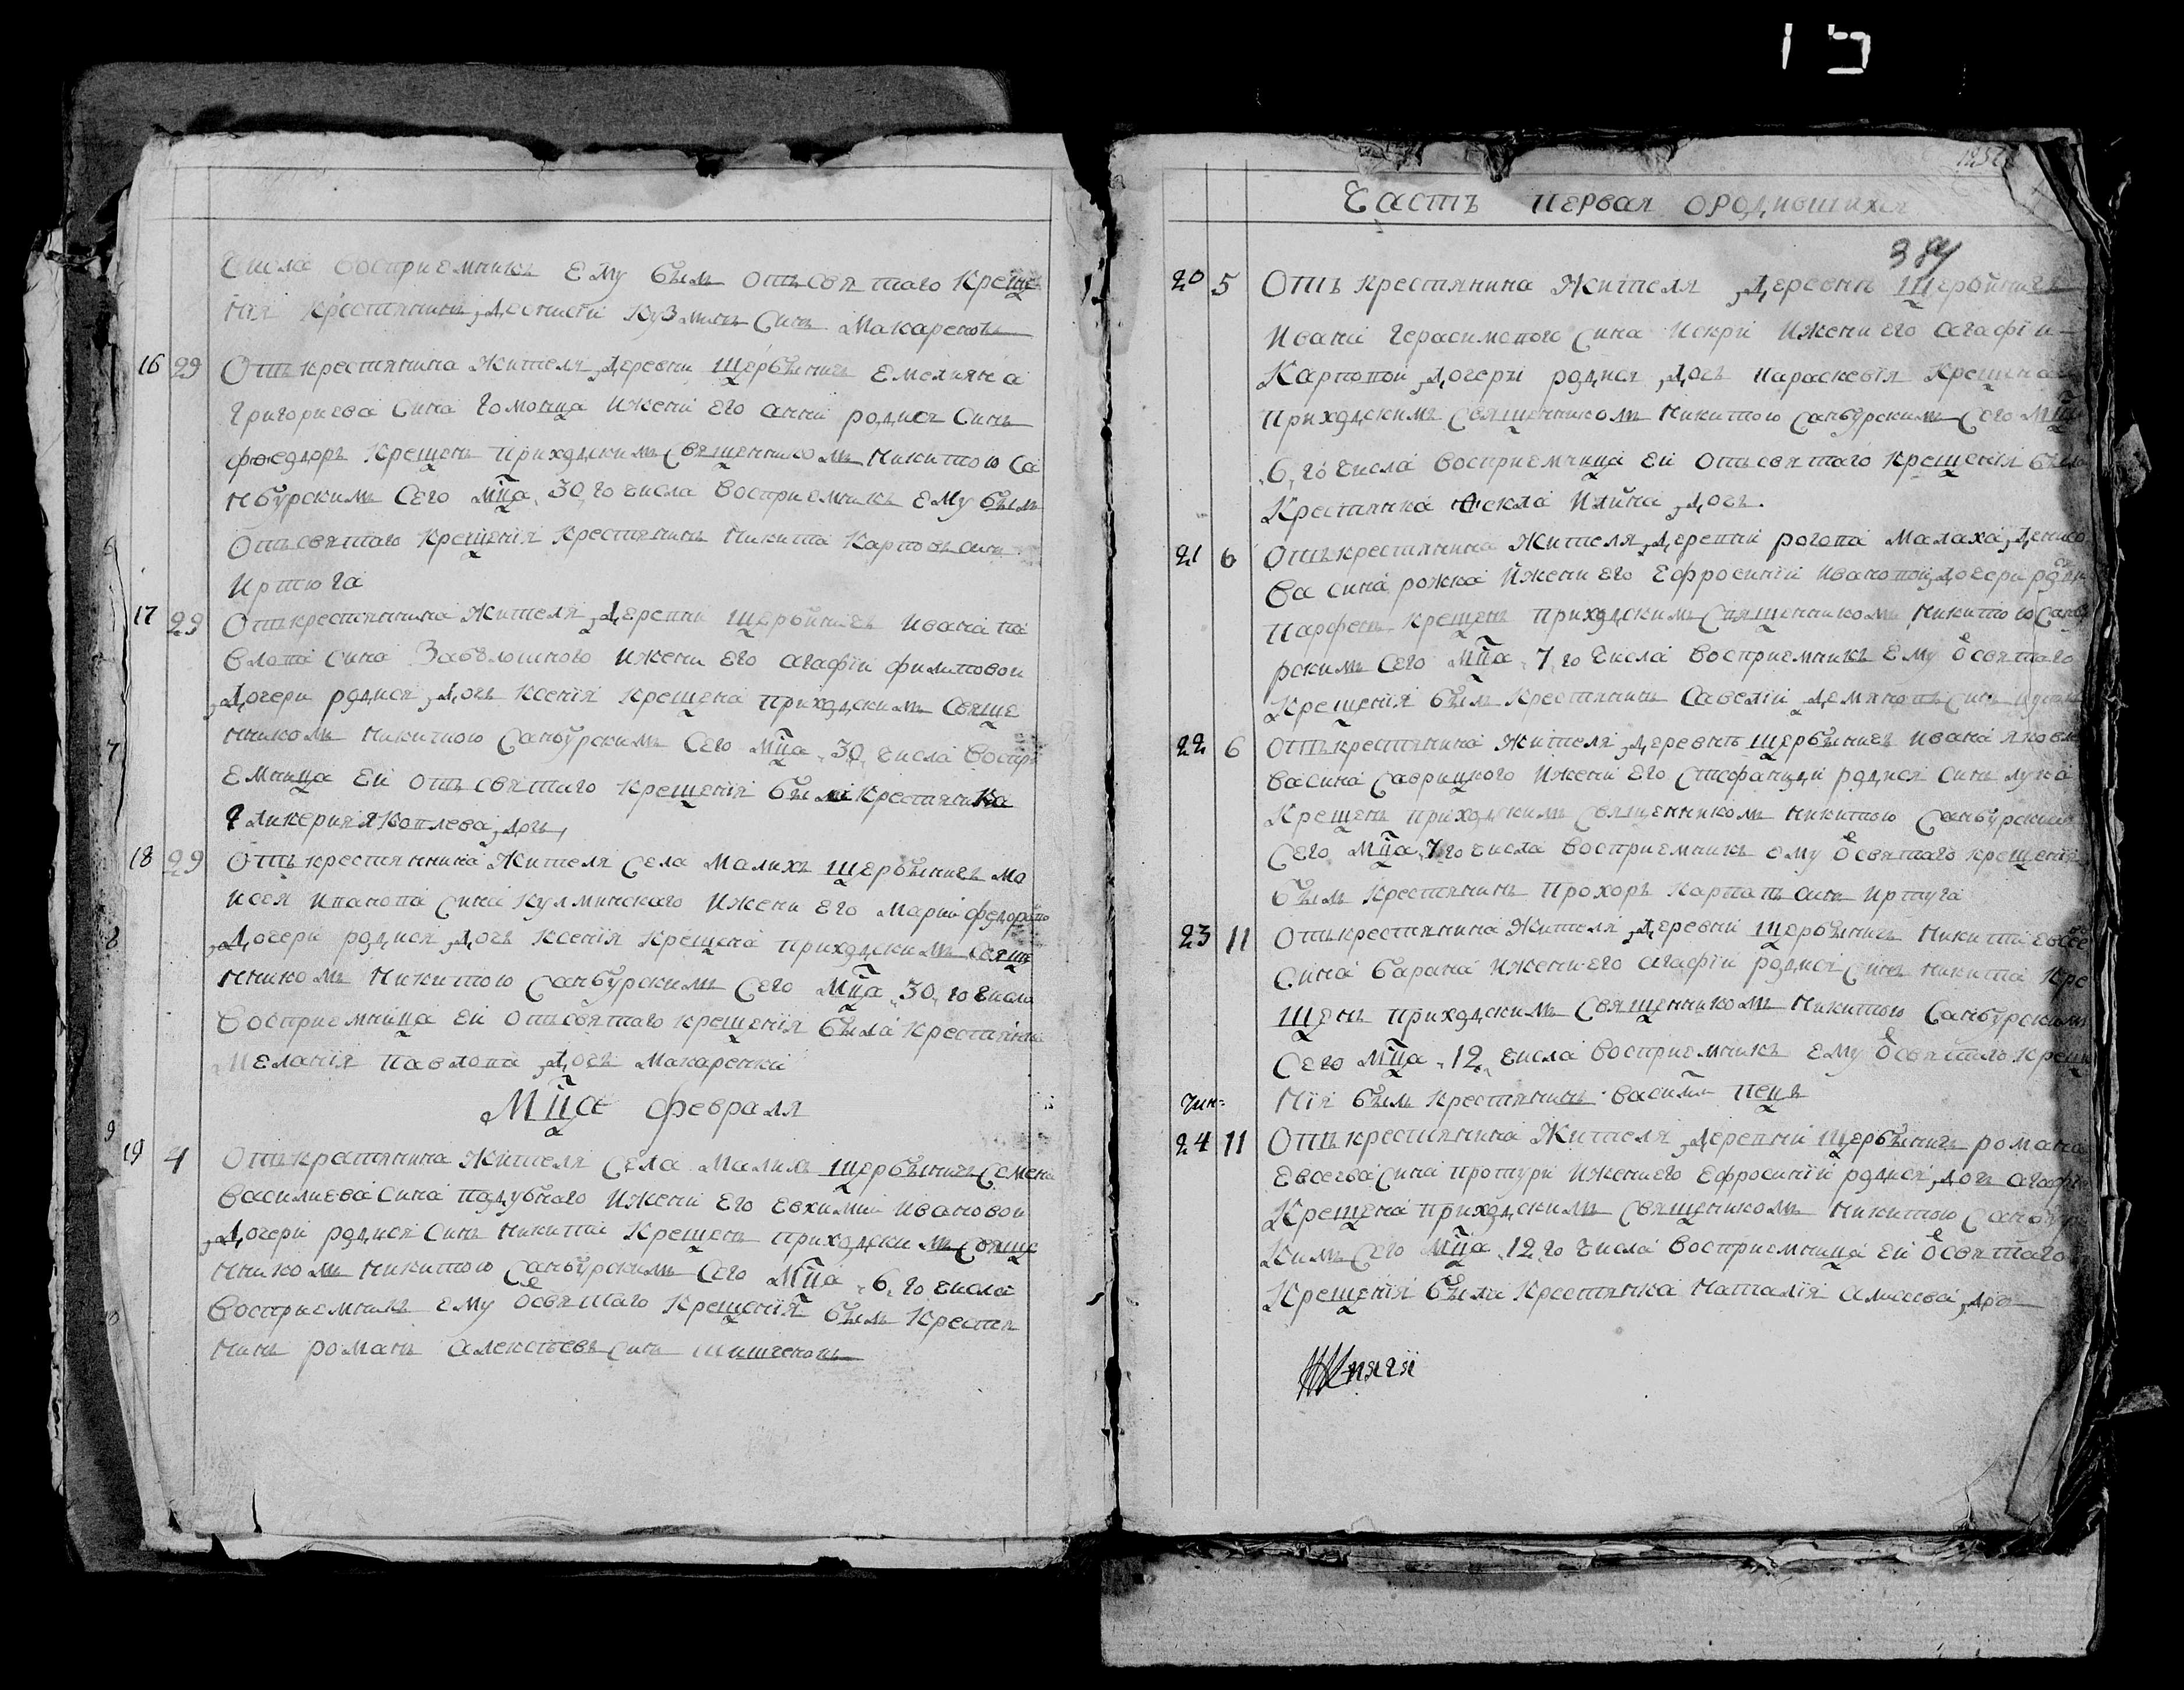 числа восприемникъ ему былъ отъ святаго креще
нія крестянинъ Леонтій Кузминъ синъ Макаренъ
16 29 Отъ крестянина жителя деревни Щербиничъ Емелияна
Григориева сина Гомонца и жени его Анни родися синъ
Феедоръ крещенъ приходскимъ священникомъ Никитою Са
нбурскимъ сего мца 30 го числа восприемникъ ему былъ
отъ святаго крещенія крестянинъ Никита Карповъ синъ
Иртюга
17 29 Отъ крестянина жителя деревни Щербиничъ Ивана Па
влова сина Заболошного и жени его Агафіи Филиповои
дочери родися дочь Ксенія крещена приходскимъ свяще
нникомъ Никитою Санбурскимъ сего мца 30 числа воспри
емница ей отъ святаго крещенія била крестянка
Гликерия Яковлева дочь
18 29 Отъ крестянина жителя села Малихъ Щербиничъ Мо
исея Иванова сина Кулминского и жени его Маріи Федорово
дочери родися дочь Ксенія крещена приходскимъ свяще
нникомъ Никитою Санбурскимъ сего мца 30 го числа
восприемница ей отъ святаго крещенія была крестянка
Меланія Павлова дочь Макаренки
Мца Февраля
19 4 Отъ крестянина жителя села Малихъ Щербиничъ Семена
Василиева сина Подубного и жени его Евхиміи Ивановои
дочери родися синъ Никита крещенъ приходскимъ свяще
нникомъ Никитою Санбурскимъ сего мца 6 го числа
восприемникъ ему о святаго крещенія былъ крестя
нинъ Романъ Алексѣевъ синъ Шишченокъ
Часть первая о родившихся
384
20 5 Отъ крестянина жителя деревни Щербиничъ
Ивана Герасимового сина Искри и жени его Агафіи
Карповои дочери родися дочь Параскевія крещена
приходскимъ священникомъ Никитою Санбурскимъ сего мца
6 го числа восприемница ей отъ святаго крещенія была
крестянка Фекла Илина дочь.
21 6 Отъ крестянина жителя деревни Рогова Малаха Денисо
ва сина Рожка и жени его Ефросиніи Ивановои дочери роди синъ
Парфенъ крещенъ приходскимъ священникомъ Никитою Санбу
рскимъ сего мца 7 го числа восприемникъ ему о святаго
крещенія былъ крестянинъ Савелій Демяновъ синъ
22 6 Отъ крестянина жителя деревнѣ Щербиничъ Ивана Яковле
ва сина Саврицкого и жени его Стефаниди родися синъ Лука
крещенъ приходскимъ священникомъ Никитою Санбурскимъ
сего мца 7 го числа восприемникъ ему о святаго крещенія
былъ крестянинъ Прохоръ Карповъ синъ Иртуга
23 11 Отъ крестянина жителя деревни Щербиничъ Никити Евсее
сина Барана и жени его Агафіи родися синъ Никита кре
щенъ приходскимъ священникомъ Никитою Санбурскимъ
сего мца 12 числа восприемникъ ему о святаго креще
нія былъ крестянинъ Василій Пецъ
24 11 Отъ крестянина жителя деревни Щербиничъ Романа
Евсеева сина Протури и жени его Ефросиніи родися дочь Агафія
крещена приходскимъ священикомъ Никитою Санбурс
кимъ сего мца 12 го числа восприемница ей о святаго
крещенія была крестянка Наталія Алисеева дочь